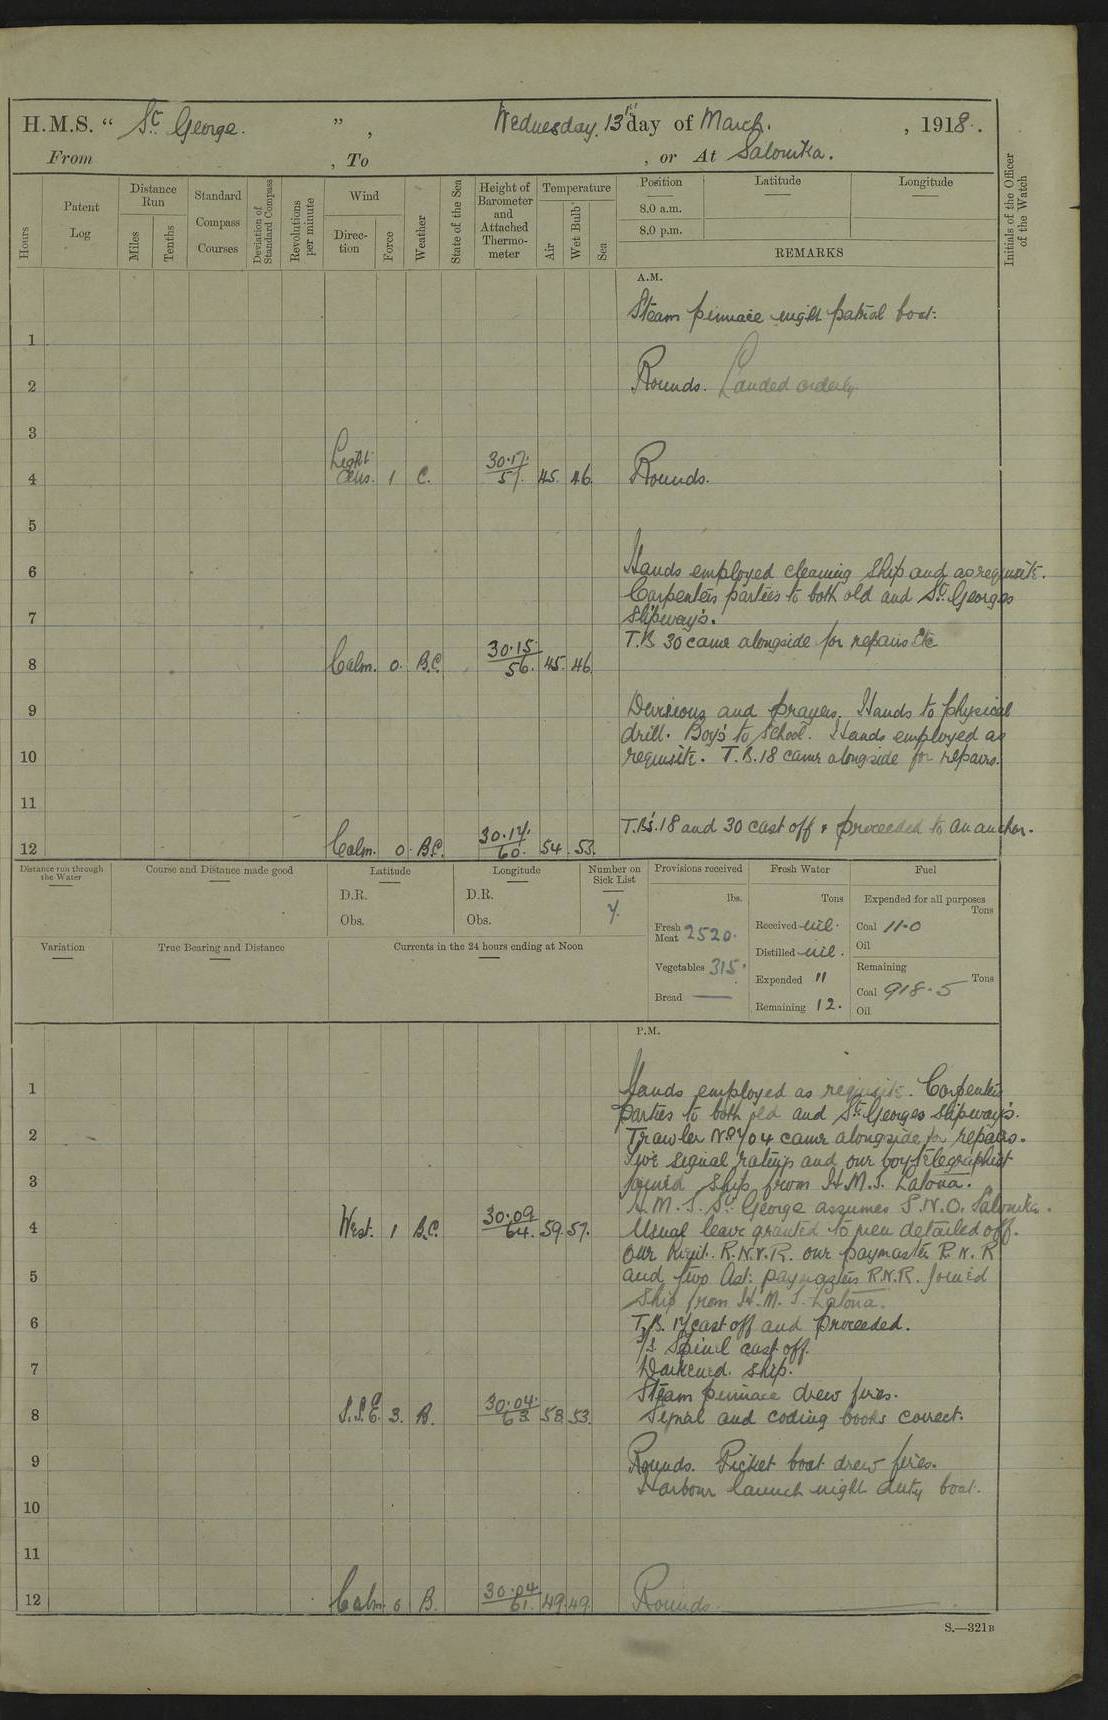 H.M.S. “ St. George. ” , Wednesday. 13th day of March. , 1918.
From , To , or At Salonika.
Hours
Patent Log
Distance Run
Miles
Tenths
Standard Compass Courses
Deviation of Standard Compass
Revolutions per minute
Wind
Direction
Force
Weather
State of the Sea
Height of Barometer and Attached Thermometer
Temperature
Air
Wet Bulb
Sea
Position
Latitude
Longitude
8.0 a.m.
8.0 p.m.
REMARKS
Initials of the Officer of the Watch
A.M.
Steam pinnace night patrol boat.
1
2 Rounds. Landed orderly
3
4 Light airs. 1 C. 30.17. 57. 45. 46. Rounds.
5
6 Hands employed cleaning ship and as requisite.
Carpenters parties to both old and St. Georges
7 Slipway's.
T.B. 30 came alongside for repairs etc
8 Calm. 0. B.C. 30.15. 56. 45. 46.
9 Divisions and prayers. Hands to physical
drill. Boys to School. Hands employed as
10 requisite. T.B. 18 came alongside for repairs.
11
T.B's. 18 and 30 cast off & proceeded to an anchor.
12 Calm. 0. B.C. 30.14. 60. 54. 53.
Distance run through the Water
Course and Distance made good
Latitude
D.R.
Obs.
Longitude
D.R.
Obs.
Number on Sick List
7.
Provisions received
lbs.
Fresh Meat 2520.
Vegetables 315.
Bread —
Fresh Water
Tons
Received nil.
Distilled nil.
Expended "
Remaining 12.
Fuel
Expended for all purposes
Tons
Coal 11.0
Oil
Remaining
Tons
Coal 918.5
Oil
Variation
True Bearing and Distance
Currents in the 24 hours ending at Noon
P.M.
1 Hands employed as requisite. Carpenters
parties to both old and St. Georges Slipway's.
2 Trawler No 04 came alongside for repairs.
signal ratings and one boy telegraphist
3 joined ship from H.M.S. Latona.
H.M.S. St. George assumes S.N.O. Salonika.
4 West. 1 B.C. 30.09 64. 59. 57. Usual leave granted to men detailed off.
One Lieut. R.N.V.R. one paymaster R.N.R
5 and two Ast: paymasters R.N.R. joined
Ship from H.M.S. Latona.
6 T.B. 17 cast off and proceeded.
Spinel cast off.
7 Darkened ship.
Steam pinnace drew fires.
8 S.S.E. 3. B. 30.04. 63. 58. 53. Signal and coding books correct.
9 Rounds. Picket boat drew fires.
Harbour launch night duty boat.
10
11
12 Calm 0 B. 30.04 61. 49. 49. Rounds.
S.—321B